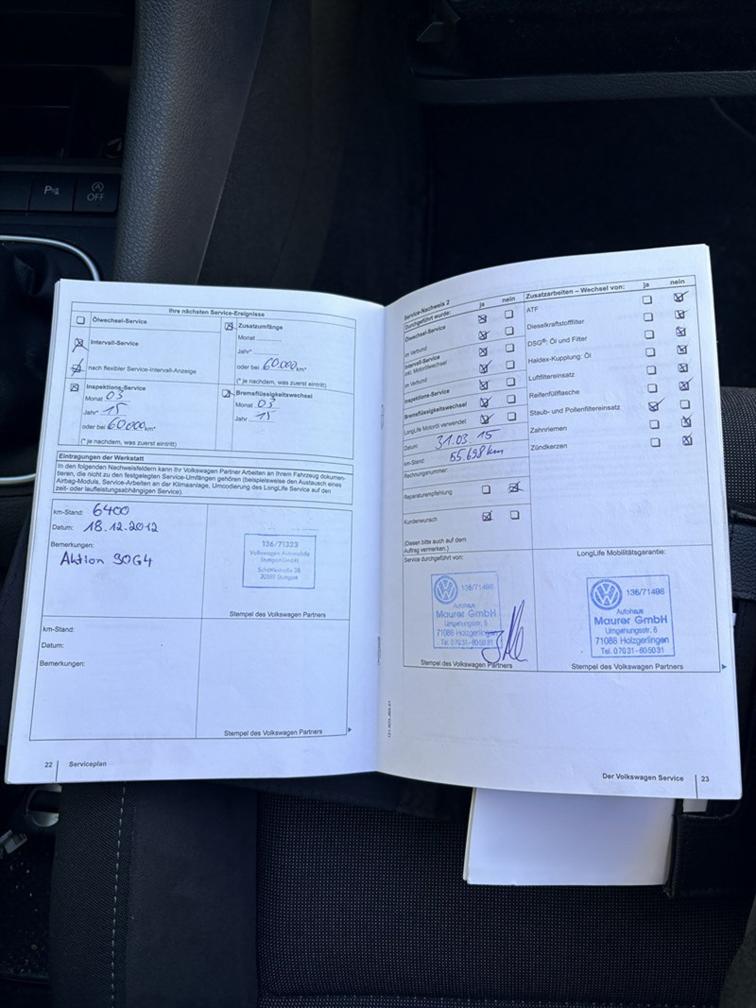 P
OFF
Ihre nächsten Service-Ereignisse
Ölwechsel-Service
Intervall-Service
nach flexibler Service-Intervall-Anzeige
Zusatzumfänge
Monat
Jahr*
oder bei 60.000 km*
(* je nachdem, was zuerst eintritt)
Inspektions-Service
Monat 03
Jahr* 15
oder bei 60.000 km*
(* je nachdem, was zuerst eintritt)
Bremsflüssigkeitswechsel
Monat 03
Jahr 15
Eintragungen der Werkstatt
In den folgenden Nachweisfeldern kann Ihr Volkswagen Partner Arbeiten an Ihrem Fahrzeug dokumen-
tieren, die nicht zu den festgelegten Service-Umfängen gehören (beispielsweise den Austausch eines
Airbag-Moduls, Service-Arbeiten an der Klimaanlage, Umcodierung des LongLife Service auf den
zeit- oder laufleistungsabhängigen Service).
km-Stand: 6400
Datum: 18.12.2012
Bemerkungen:
Aktion 30G4
136/71323
Volkswagen Automobile
Stuttgart GmbH
Stempel des Volkswagen Partners
km-Stand:
Datum:
Bemerkungen:
Stempel des Volkswagen Partners
22 Serviceplan
Service-Nachweis 2
Durchgeführt wurde: ja nein
Ölwechsel-Service
im Verbund
Intervall-Service
inkl. Motorölwechsel
im Verbund
Inspektions-Service
Bremsflüssigkeitswechsel
LongLife Motoröl verwendet
Datum: 31.03 15
km-Stand: 55.698 km
Rechnungsnummer:
Reparaturempfehlung
Kundenwunsch
(Diesen bitte auch auf dem
Auftrag vermerken.)
Zusatzarbeiten – Wechsel von: ja nein
ATF
Dieselkraftstofffilter
DSG®: Öl und Filter
Haldex-Kupplung: Öl
Luftfiltereinsatz
Reifenfüllflasche
Staub- und Pollenfiltereinsatz
Zahnriemen
Zündkerzen
Service durchgeführt von:
136/71498
Autohaus
Maurer GmbH
Umgehungsstr. 6
71088 Holzgerlingen
Tel. 07031-605031
Stempel des Volkswagen Partners
LongLife Mobilitätsgarantie:
136/71498
Autohaus
Maurer GmbH
Umgehungsstr. 6
71088 Holzgerlingen
Tel. 07031-605031
Stempel des Volkswagen Partners
Der Volkswagen Service 23